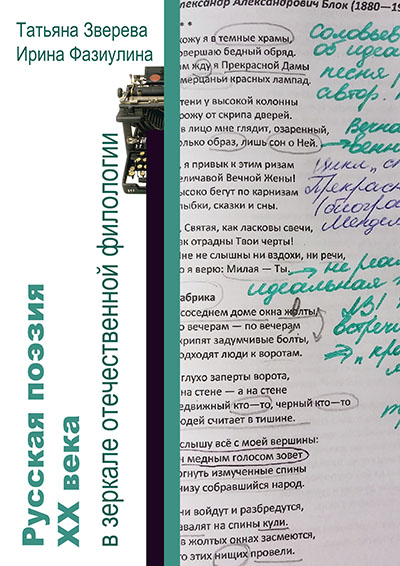 Татьяна Зверева
Ирина Фазиулина
Русская поэзия
XX века
в зеркале отечественной филологии
лександр Александрович Блок (1880—19
**
хожу я в темные храмы,
овершаю бедный обряд.
ам жду я Прекрасной Дамы
мерцаньи красных лампад.
тени у высокой колонны
рожу от скрипа дверей.
в лицо мне глядит, озаренный,
олько образ, лишь сон о Ней.
, я привык к этим ризам
еличавой Вечной Жены!
ысоко бегут по карнизам
лыбки, сказки и сны.
, Святая, как ласковы свечи,
ак отрадны Твои черты!
не не слышны ни вздохи, ни речи,
о я верю: Милая — Ты.
абрика
соседнем доме окна жолты.
о вечерам — по вечерам
крипят задумчивые болты,
одходят люди к воротам.
глухо заперты ворота,
на стене — а на стене
едвижный кто—то, черный кто—то
юдей считает в тишине.
слышу всё с моей вершины:
н медным голосом зовет
огнуть измученные спины
низу собравшийся народ.
ни войдут и разбредутся,
авалят на спины кули.
в жолтых окнах засмеются,
то этих нищих провели.
Соловьев
об идеа
песня
автор.
Вечна
Цикл „
Прекрасн
(биогра
Мендел
не реал
идеальная
встреч